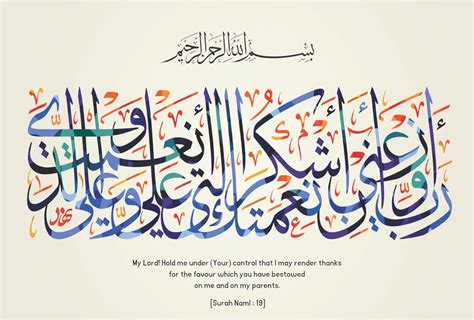 بسم الله الرحمن الرحيم
رب أوزعني أن أشكر نعمتك التي أنعمت علي وعلى والدي
My Lord! Hold me under (Your) control that I may render thanks
for the favour which you have bestowed
on me and on my parents.
[Surah Naml : 19]